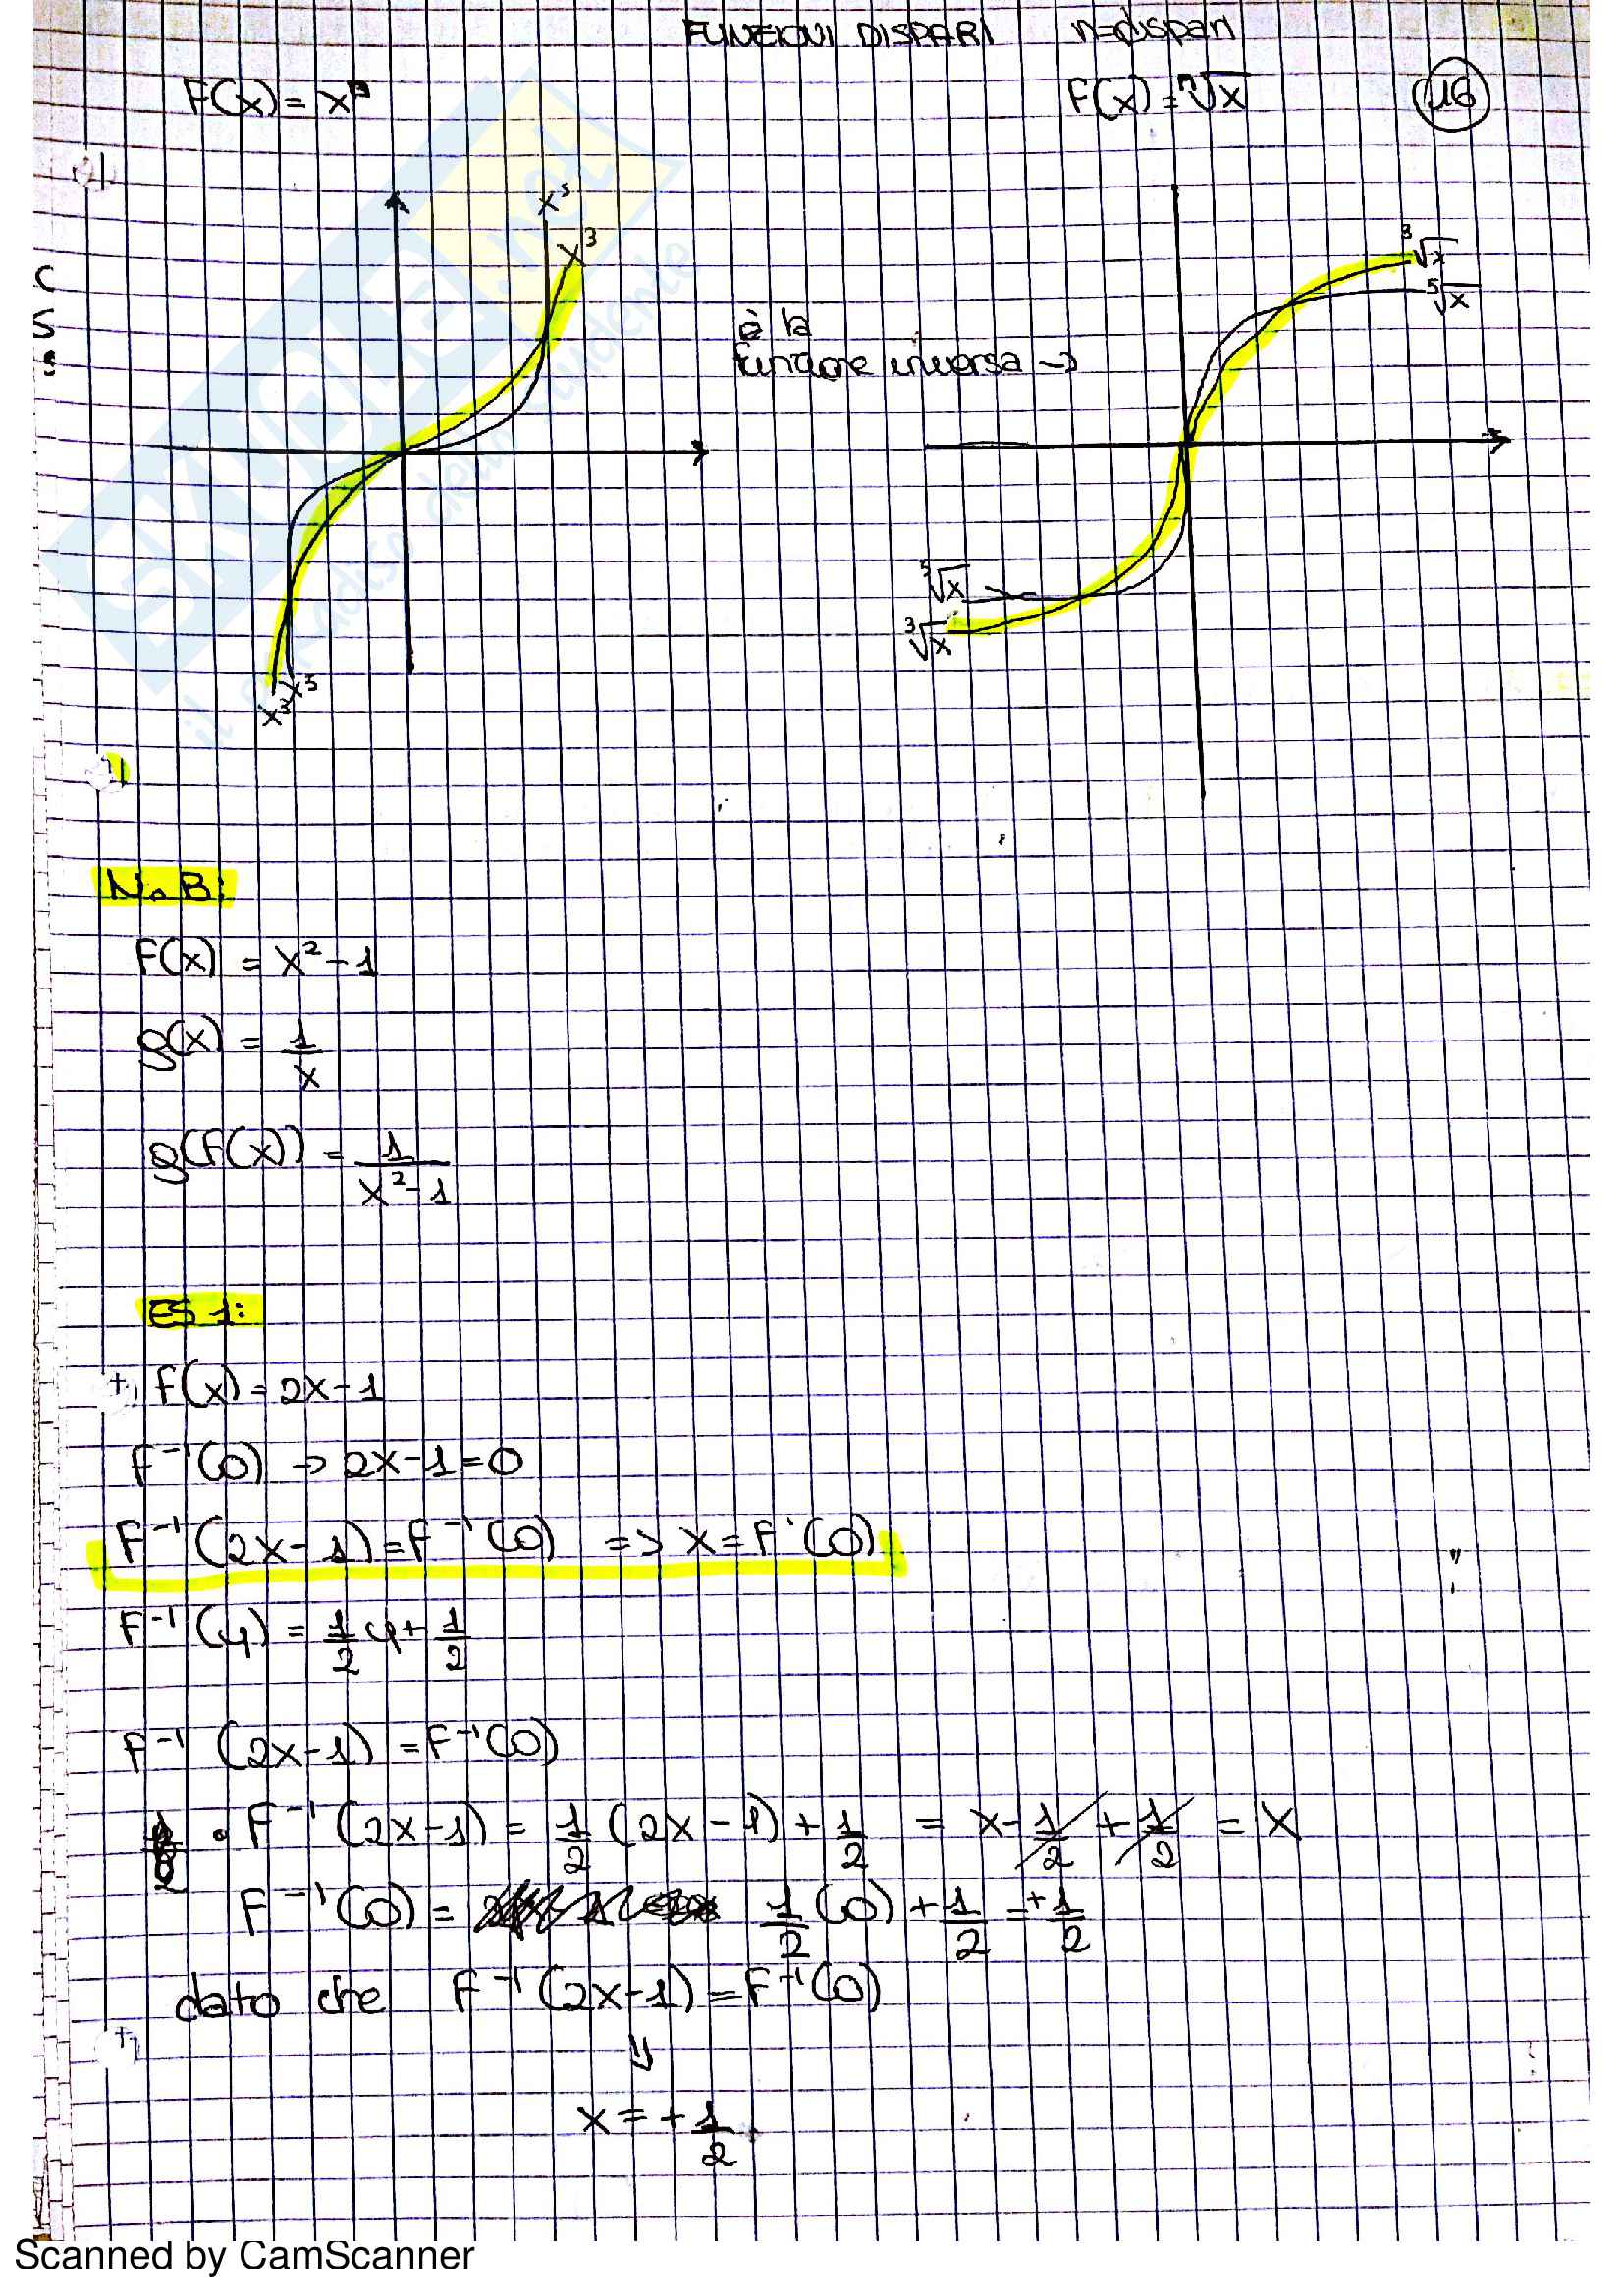 FUNZIONI DISPARI n=dispari
F(x) = xⁿ
F(x) = ⁿ√x
16
x⁵
x³
x³
x⁵
è la
funzione inversa →
³√x
⁵√x
⁵√x
³√x
C
S
N.B:
F(x) = x² - 1
g(x) = 1/x
g(F(x)) = 1/(x² - 1)
ES 1:
F(x) = 2x - 1
F⁻¹(0) → 2x - 1 = 0
F⁻¹(2x - 1) = F⁻¹(0) => x = F⁻¹(0)
F⁻¹(y) = 1/2 y + 1/2
F⁻¹(2x - 1) = F⁻¹(0)
• F⁻¹(2x - 1) = 1/2 (2x - 1) + 1/2 = x - 1/2 + 1/2 = x
F⁻¹(0) = 1/2 (0) + 1/2 = + 1/2
dato che F⁻¹(2x - 1) = F⁻¹(0)
⇓
x = + 1/2
SKUOLA.net
il paradiso dello studente
Scanned by CamScanner